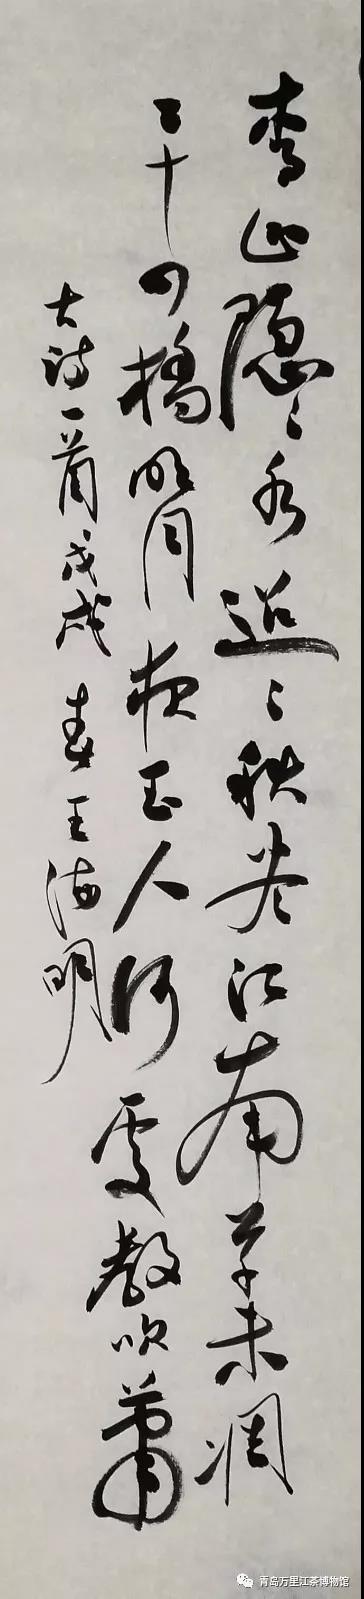 青山隐々水迢々秋尽江南草未凋
二十四橋明月夜玉人何處教吹蕭
古诗一首戊戌春王海明
青岛万里江茶博物馆